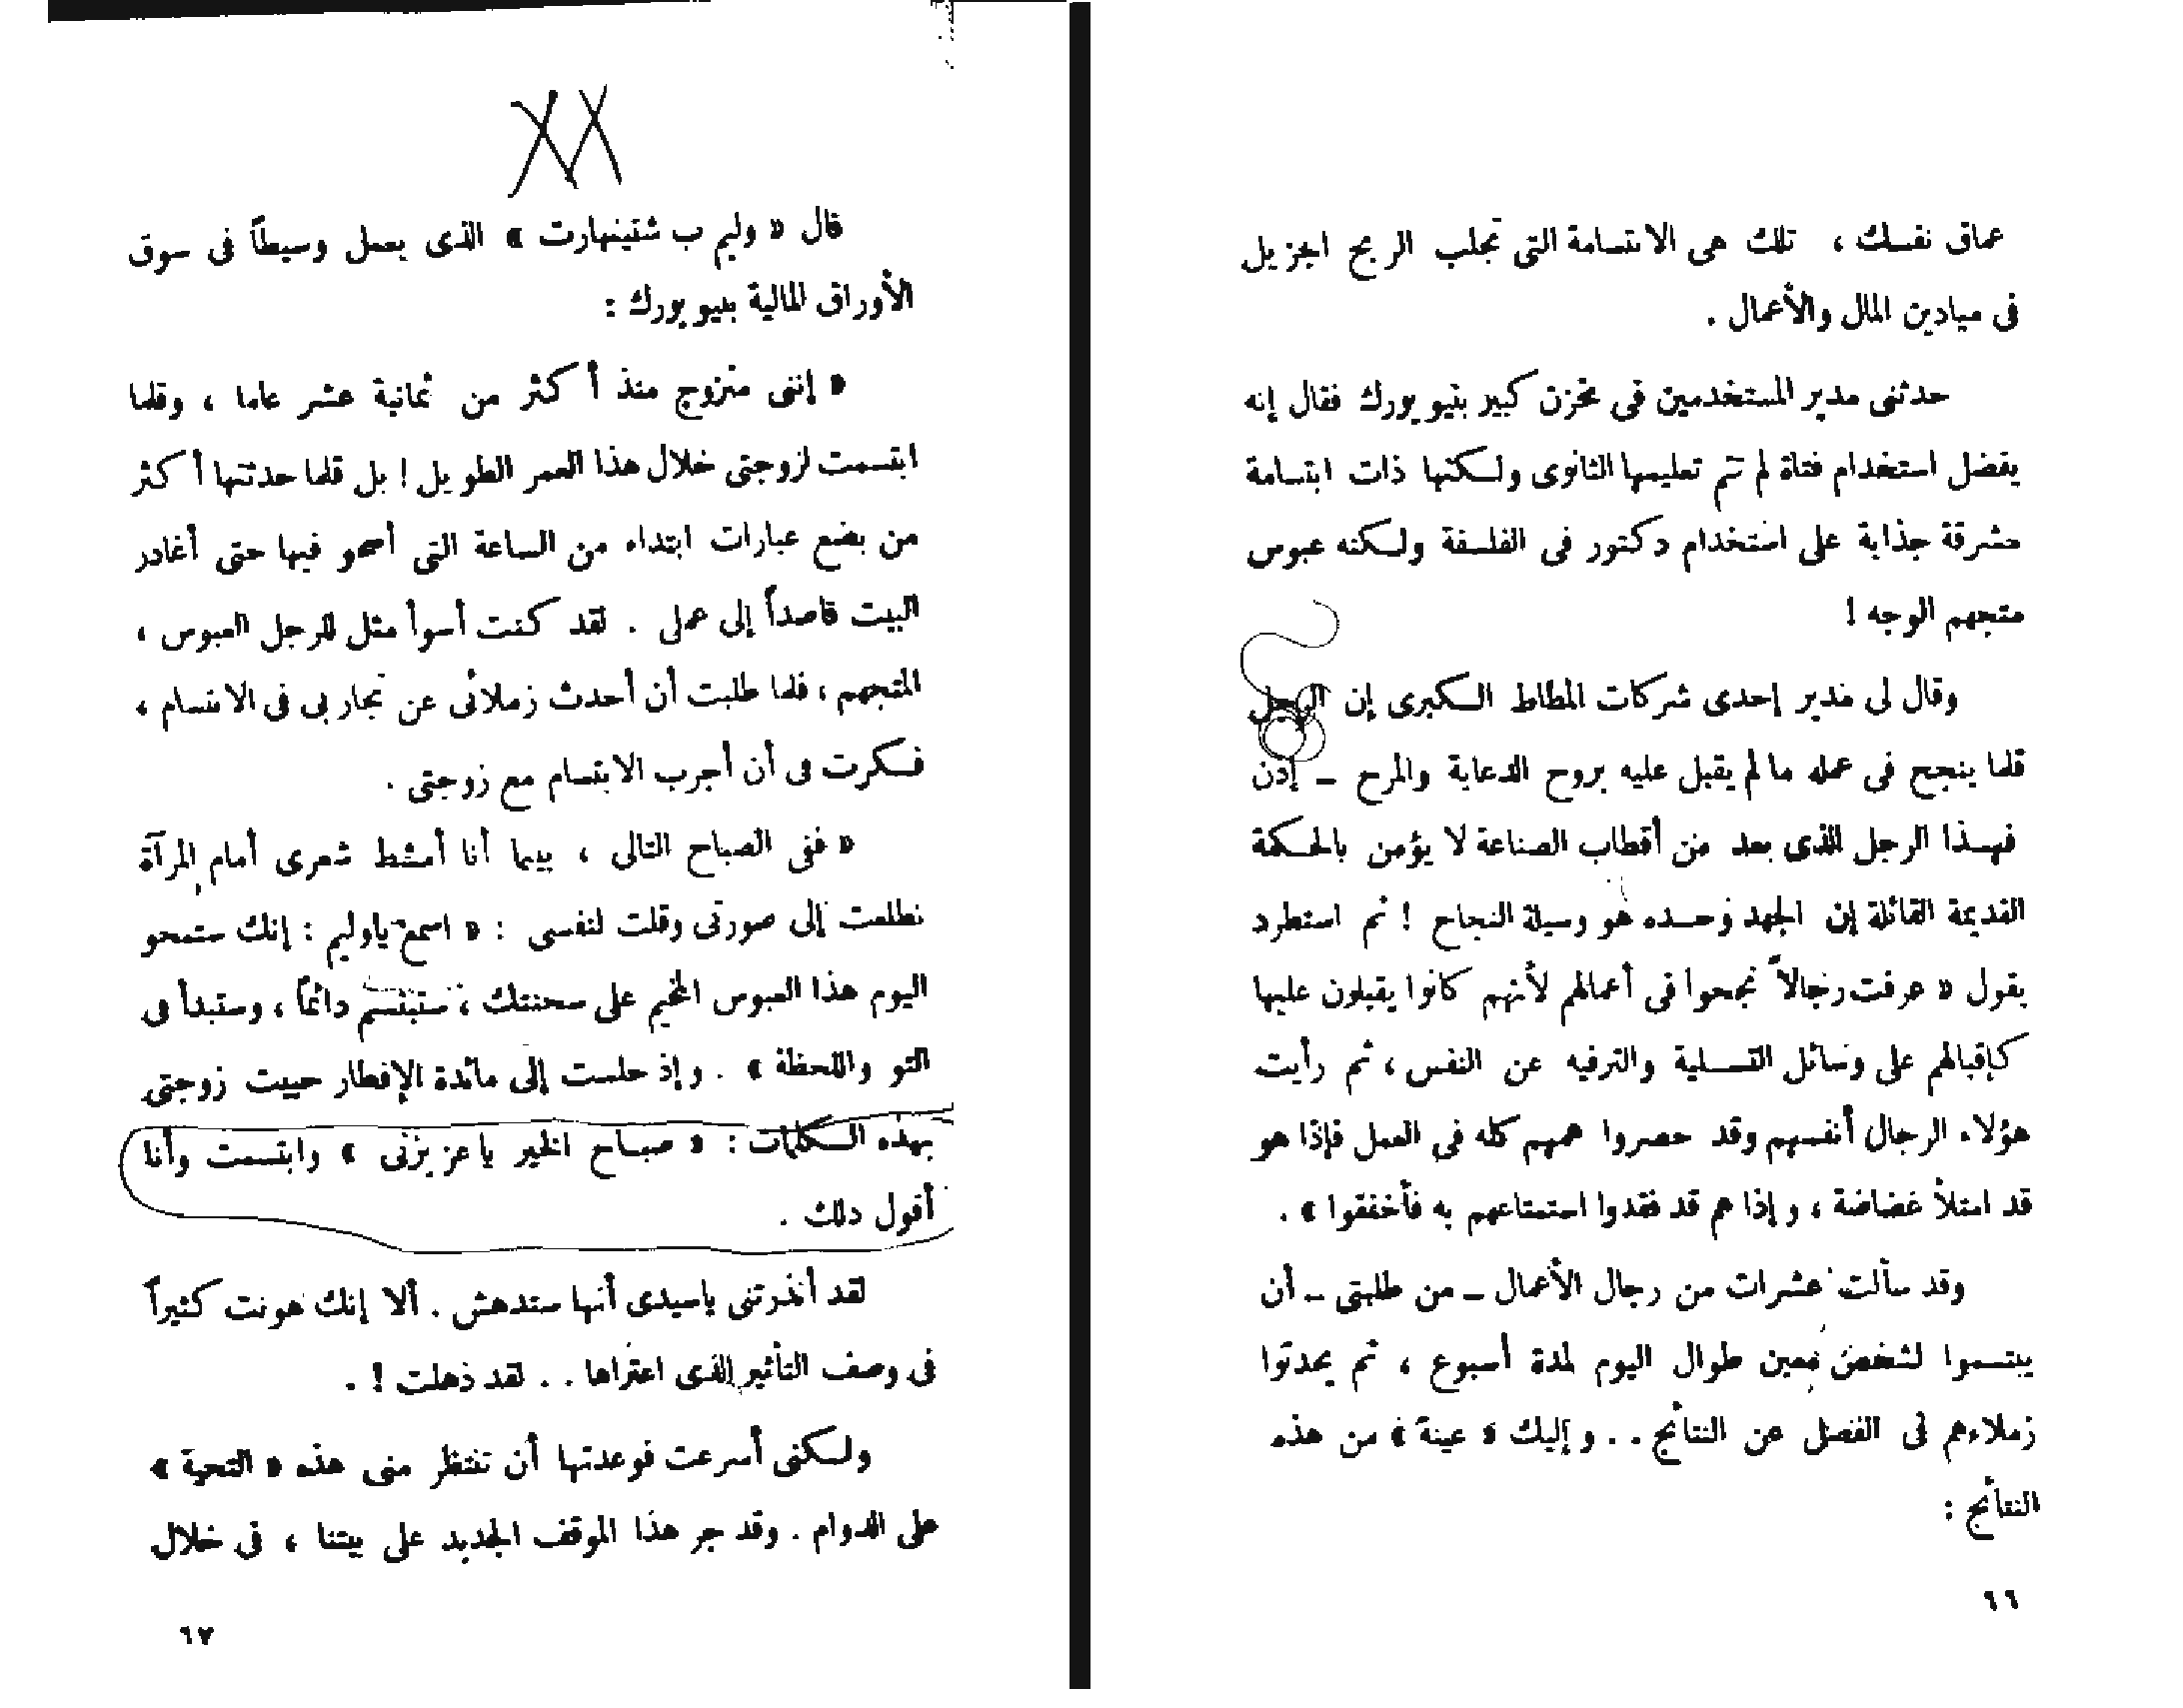 عماق نفسك ، تلك هى الابتسامة التى تجلب الربح الجزيل
فى ميادين المال والأعمال .
حدثنى مدير المستخدمين فى مخزن كبير بنيويورك فقال إنه
يفضل استخدام فتاة لم تتم تعليمها الثانوى ولكنها ذات ابتسامة
مشرقة جذابة على استخدام دكتور فى الفلسفة ولكنه عبوس
متجهم الوجه !
وقال لى مدير إحدى شركات المطاط الكبرى إن الرجل
قلما ينجح فى عمله ما لم يقبل عليه بروح الدعابة والمرح – إذن
فهذا الرجل الذى يعد من أقطاب الصناعة لا يؤمن بالحكمة
القديمة القائلة إن الجهد وحده هو وسيلة النجاح ! ثم استطرد
يقول « عرفت رجالاً نجحوا فى أعمالهم لأنهم كانوا يقبلون عليها
كإقبالهم على وسائل التسلية والترفيه عن النفس ، ثم رأيت
هؤلاء الرجال أنفسهم وقد حصروا همهم كله فى العمل فإذا هو
قد امتلأ غضاضة ، وإذا هم قد فقدوا استمتاعهم به فأخفقوا » .
وقد سألت عشرات من رجال الأعمال – من طلبتى – أن
يبتسموا لشخص معين طوال اليوم لمدة أسبوع ، ثم يحدثوا
زملاءهم فى الفصل عن النتائج . . وإليك « عينة » من هذه
النتائج :
٦٦
XX
قال « وليم ب شتينهارت » الذى يعمل وسيطاً فى سوق
الأوراق المالية بنيويورك :
« إننى متزوج منذ أكثر من ثمانية عشر عاما ، وقلما
ابتسمت لزوجتى خلال هذا العمر الطويل ! بل قلما حدثتها أكثر
من بضع عبارات ابتداء من الساعة التى أصحو فيها حتى أغادر
البيت قاصداً إلى عملى . لقد كنت أسوأ مثل للرجل العبوس ،
المتجهم ، فلما طلبت أن أحدث زملائى عن تجاربى فى الابتسام ،
فكرت فى أن أجرب الابتسام مع زوجتى .
« ففى الصباح التالى ، بينما أنا أمشط شعرى أمام المرآة
تطلعت إلى صورتى وقلت لنفسى : « اسمع ياوليم : إنك ستمحو
اليوم هذا العبوس المخيم على سحنتك ، ستبتسم دائماً ، وستبدأ فى
التو واللحظة » . وإذ جلست إلى مائدة الإفطار حييت زوجتى
بهذه الكلمات : « صباح الخير ياعزيزتى » وابتسمت وأنا
أقول ذلك .
لقد أنذرتنى ياسيدى أنها ستدهش . ألا إنك هونت كثيراً
فى وصف التأثير الذى اعتراها . . لقد ذهلت ! .
ولكنى أسرعت فوعدتها أن تنتظر منى هذه « التحية »
على الدوام . وقد جر هذا الموقف الجديد على بيتنا ، فى خلال
٦٧